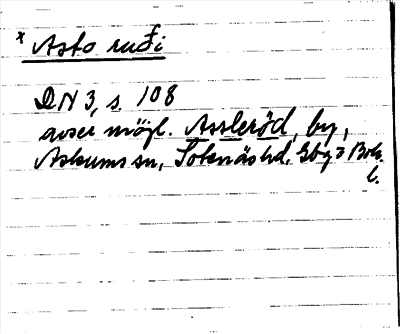 * Asto ruði
DN 3, s. 108
avser möjl. Assleröd, by,
Askums sn, Sotenäs hd, Gbg o Boh.
l.